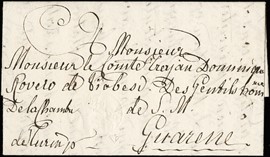 A Monsieur
Monsieur le Comte Trajan Dominique
Rovero de Des Gentilshom
De la Chambre de S. M.
de Turin